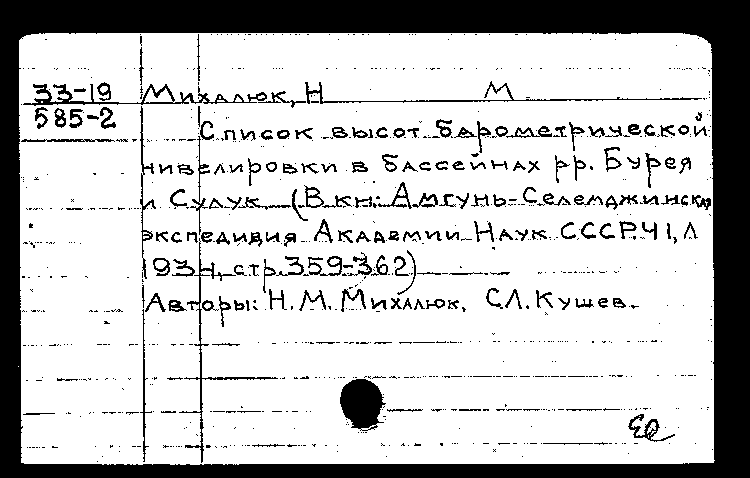 33-19 Михалюк, Н М
585-2
Список высот барометрической
нивелировки в бассейнах рр. Бурея
и Сулук (В кн: Амгунь-Селемджинская
экспедиция Академии Наук СССР.Ч1, Л
1934, стр.359-362)
Авторы: Н.М. Михалюк, С.Л. Кушев.